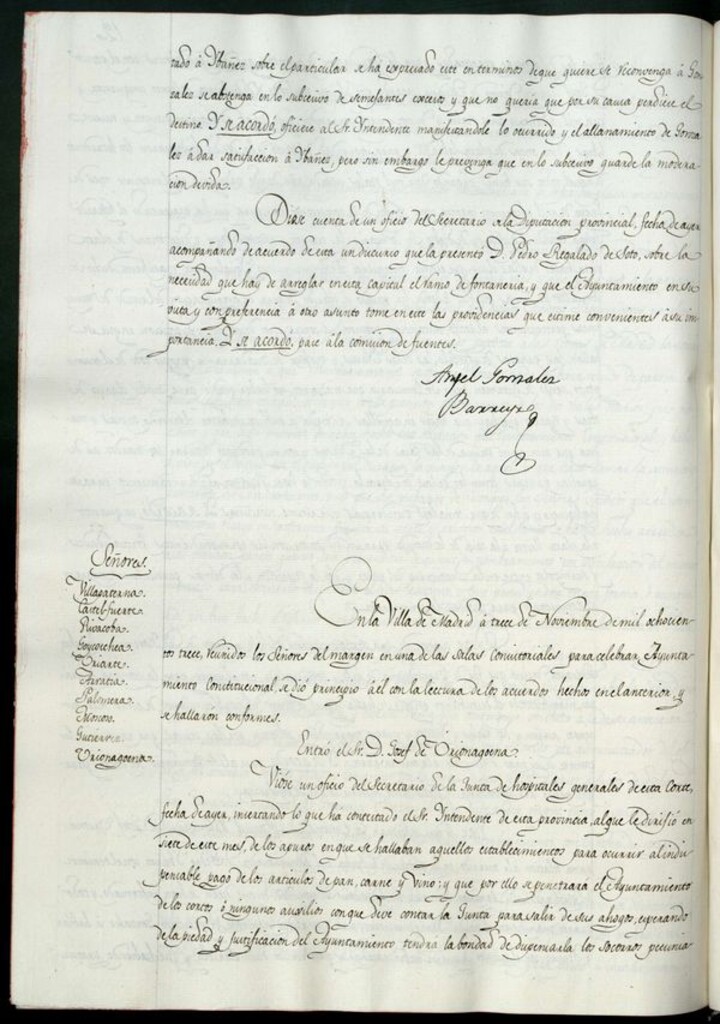 tado á Ibañez sobre el particular se ha expresado este en terminos de que quiere se reconvenga á Gon
zales se abstenga en lo subcesivo de semejantes excesos y que no queria que por su causa perdiese el
destino. Y se acordó, oficiese al Sr. Intendente manifestandole lo ocurrido y el allanamiento de Gonza
les á dar satisfaccion á Ibañez, pero sin embargo le prevenga que en lo subcesivo guarde la modera
cion devida.
Diose cuenta de un oficio del Secretario de la Diputacion provincial, fecha de ayer
acompañando de acuerdo de esta un discurso que la presentó D. Pedro Regalado de Soto, sobre la
necesidad que hay de arreglar en esta capital el ramo de fontaneria, y que el Ayuntamiento en su
vista y con preferencia á otro asunto tome en este las providencias que estime convenientes á su im
portancia. Y se acordó, pase á la comision de fuentes.
Angel Gonzalez
Barreyro
Señores.
Villapaterna.
Castel-fuerte.
Rivacoba.
Goycoechea.
Uriarte.
Arratia.
Palomera.
Monson.
Gutierrez.
Urionagoena.
En la Villa de Madrid á trece de Noviembre de mil ochocien
tos trece, reunidos los Señores del margen en una de las salas Consistoriales para celebrar Ayunta
miento Constitucional, se dió principio á él con la lectura de los acuerdos hechos en el anterior, y
se hallaron conformes.
Entró el Sr. D. Josef de Urionagoena.
Viose un oficio del Secretario de la Junta de hospitales generales de esta Corte,
fecha de ayer, insertando lo que ha contestado el Sr. Intendente de esta provincia, al que le dirijió en
siete de este mes, de los apuros en que se hallaban aquellos establecimientos para ocurrir al indis
pensable pago de los articulos de pan, carne y vino: y que por ello se penetrará el Ayuntamiento
de los cortos ó ningunos auxilios con que deve contar la Junta para salir de sus ahogos, esperando
de la piedad y justificacion del Ayuntamiento tendrá la bondad de dispensarla los socorros pecunia